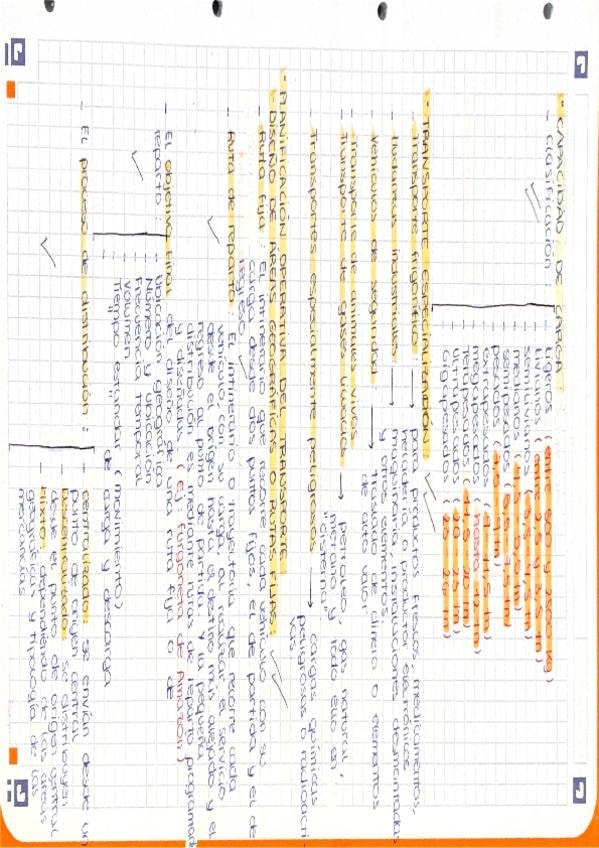 · CAPACIDAD DE CARGA:
- Clasificación:
- Ligeros (entre 500 y 2500 kg)
- Livianos (entre 2,5 y 3,5 tn)
- semilivianos
- medianos
- semipesados
- pesados
- extrapesados
- megapesados
- Ultrapesados
- Gigapesados
· TRANSPORTE ESPECIALIZADO:
- Transporte frigorífico → para productos frescos, medicamentos,
heladería o productos electrónicos.
- mudanzas industriales → maquinaria, instalaciones desmontadas
y otros elementos.
- vehículos de seguridad → traslado de dinero o elementos
de alto valor
- Transporte de animales vivos
- Transporte de gases licuados → petroleo, gas natural,
metano y todo ello en
"cisterna".
- Transportes especialmente peligrosos → cargas químicas
peligrosas o radioacti-
vas.
· PLANIFICACIÓN OPERATIVA DEL TRANSPORTE
· DISEÑO DE ÁREAS GEOGRÁFICAS O RUTAS FIJAS:
- Ruta fija: El intinerario que recorre cada vehículo con su
carga desde dos puntos fijos, el de partida y el de
regreso
- Ruta de reparto: El intinerario o trayectoria que recorre cada
vehículo, con su carga, al realizar el servicio
desde el origen hasta el destino más alejado y el
regreso al punto de partida y la pequeña
distribución es mediante rutas de reparto programad
y diseñadas. (ej furgoneta de Amazon)
- El objetivo final del diseño de una ruta fija o de
reparto:
- Ubicación geográfica
- Número y ubicación
- Frecuencia temporal
- Volumen
- Tiempo estandar (movimiento)
de carga y descarga
- El proceso de distribución:
- centralizado: se envían desde un
punto de origen central
- Descentralizado: se distribuyen
que el punto de origen central
- Mixto: dependiendo de las áreas
geográficas y tipología de las
mercancías